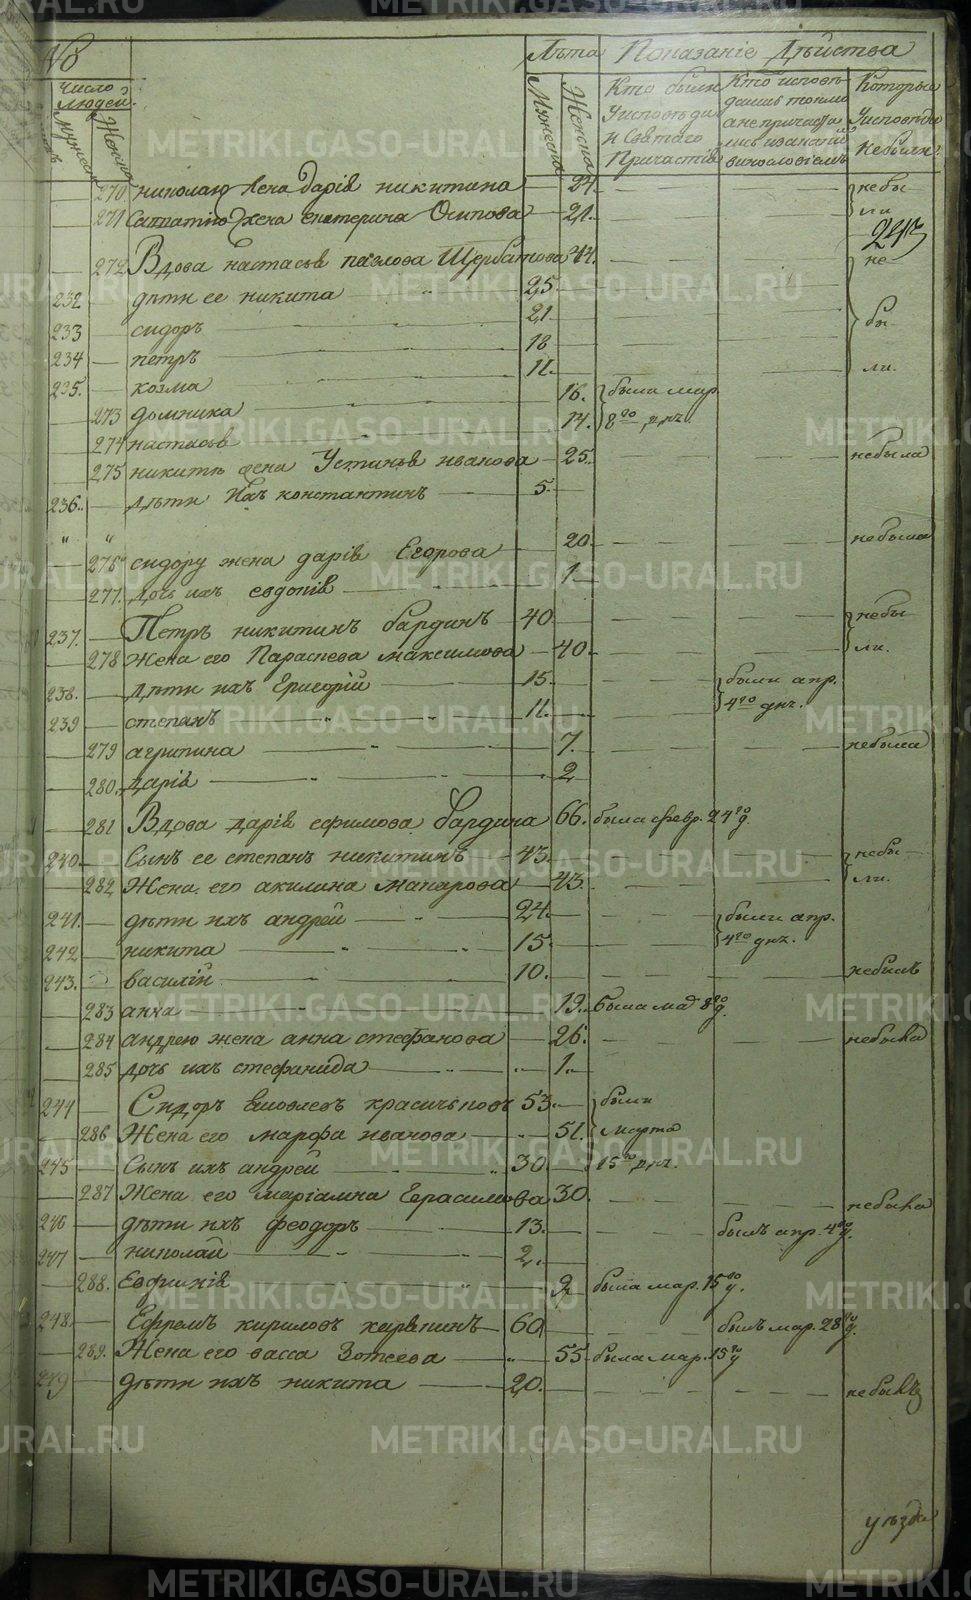 METRIKI.GASO-URAL.RU
№
Лѣта Показаніе Дѣйства
Число людей
Мужеска Женска
Мужеска Женска
Кто были у исповѣди и Святаго Причастія
Которые у исповѣди не были
270 николаю жена дарія никитина 24 небы
271 жена екатерина Осипова 21. ли
272 Вдова настасья павлова Щербакова 44. не
232 дѣти ее никита 25
233 сидоръ 21 бы
234 петръ 18
235. козма 11. ли.
273 домника 16. была мар.
274 настасья 14. 8го дня
275 никитѣ жена Устинья иванова 25. небыла
236. дѣти ихъ константинъ 5.
" "
276 сидору жена дарія Егорова 20. небыла
277. дочь ихъ евдокія 1
237. Петръ никитинъ бардинъ 40 небы
278 Жена его Параскева максимова 40. ли.
238. дѣти ихъ Григорій 15. были апр.
239 степанъ 11. 4го дня.
279 агрипина 7. небыла
280. дарія 2
281 Вдова дарія ефимова бардина 66. была февр. 24го д.
240 Сынъ ее степанъ никитинъ 43. небы
282 Жена его акилина макарова 43. ли.
241. дѣти ихъ андрей 24. были апр.
242 никита 15. 4го дня.
243. василій 10. небылъ
283 анна 19. была мар 8го д.
284 андрею жена анна стефанова 26. небыла
285 дочь ихъ стефанида 1.
244 Сидоръ яковлевъ 53. были
286 Жена его марфа иванова 51. марта
245 Сынъ ихъ андрей 30 15го дня.
287 Жена его маріамна Герасимова 30. небыла
246 дѣти ихъ феодоръ 13. былъ апр. 4го д.
247 николай 2.
288. Евфимія 9 была мар. 15го д.
248. Ефремъ кириловъ 60 былъ мар. 28го д.
289. Жена его васса Зотеева 55 была мар. 15го д
249 дѣти ихъ никита 20. небылъ
уѣзда